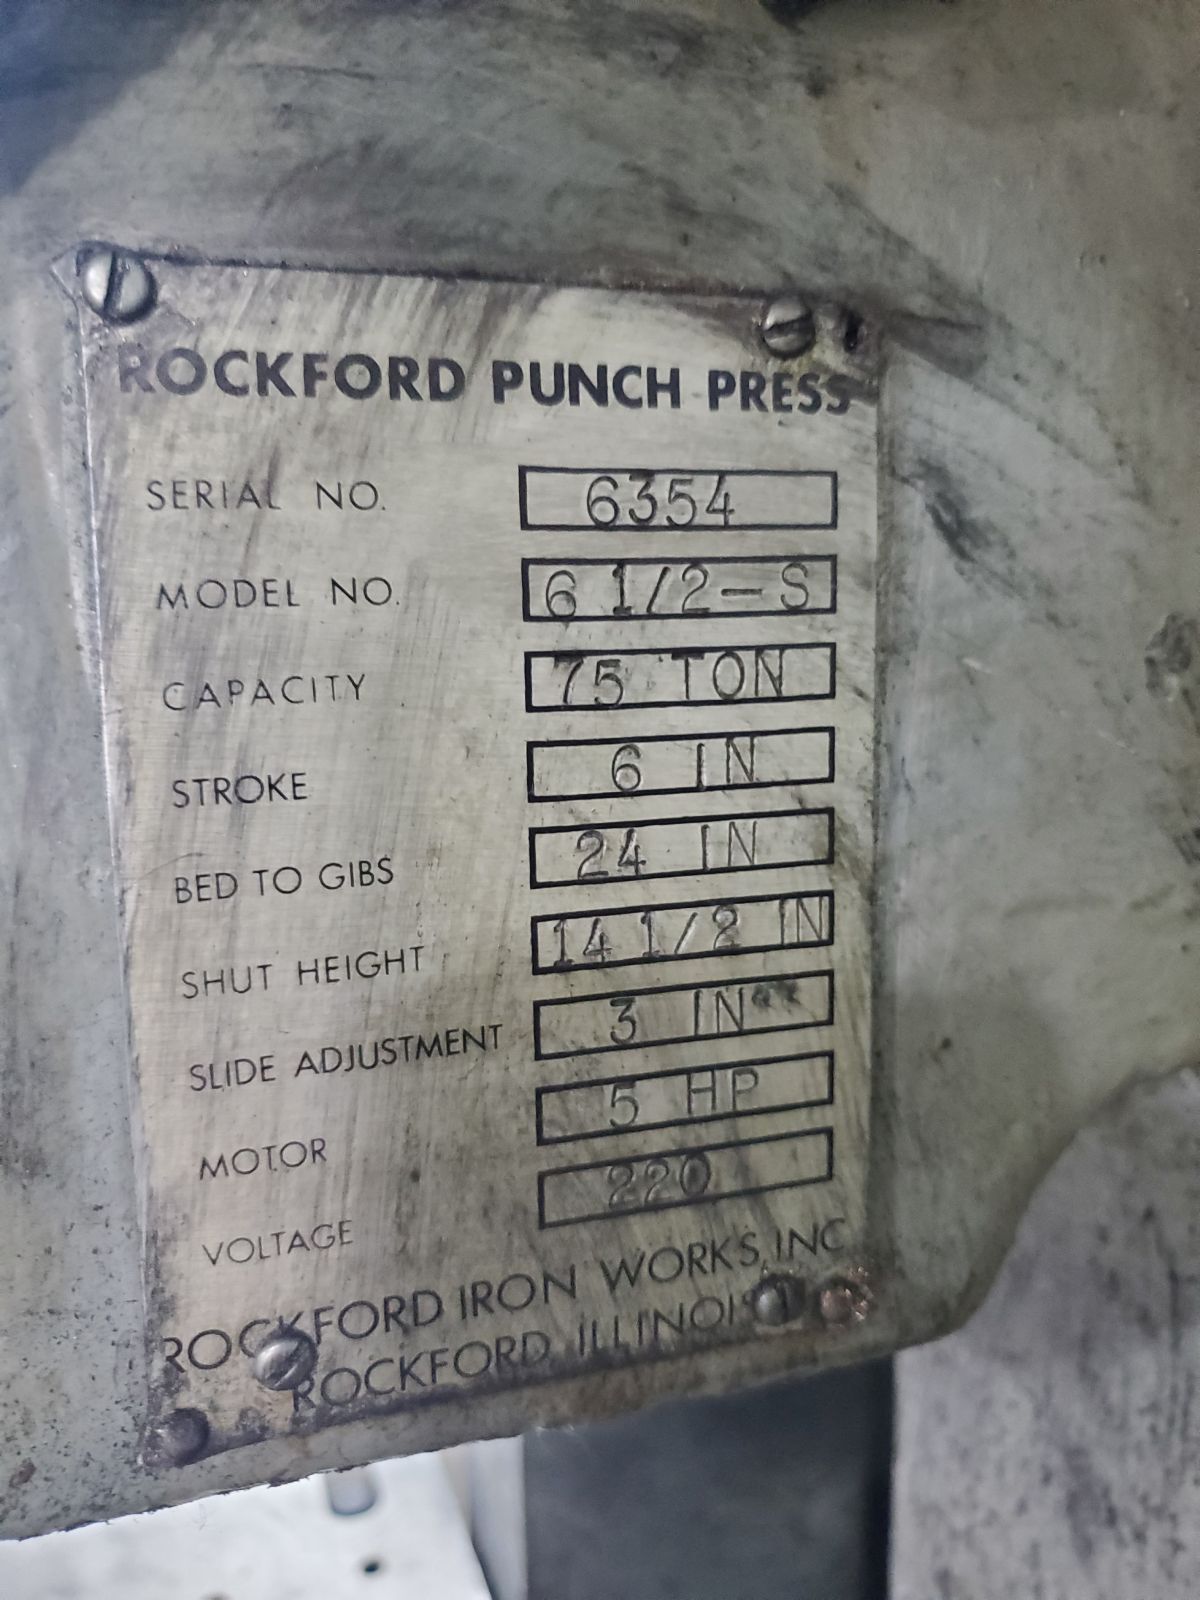 ROCKFORD PUNCH PRESS
SERIAL NO. 6354
MODEL NO. 6 1/2-S
CAPACITY 75 TON
STROKE 6 IN
BED TO GIBS 24 IN
SHUT HEIGHT 14 1/2 IN
SLIDE ADJUSTMENT 3 IN
MOTOR 5 HP
VOLTAGE 220
ROCKFORD IRON WORKS, INC
ROCKFORD ILLINOIS